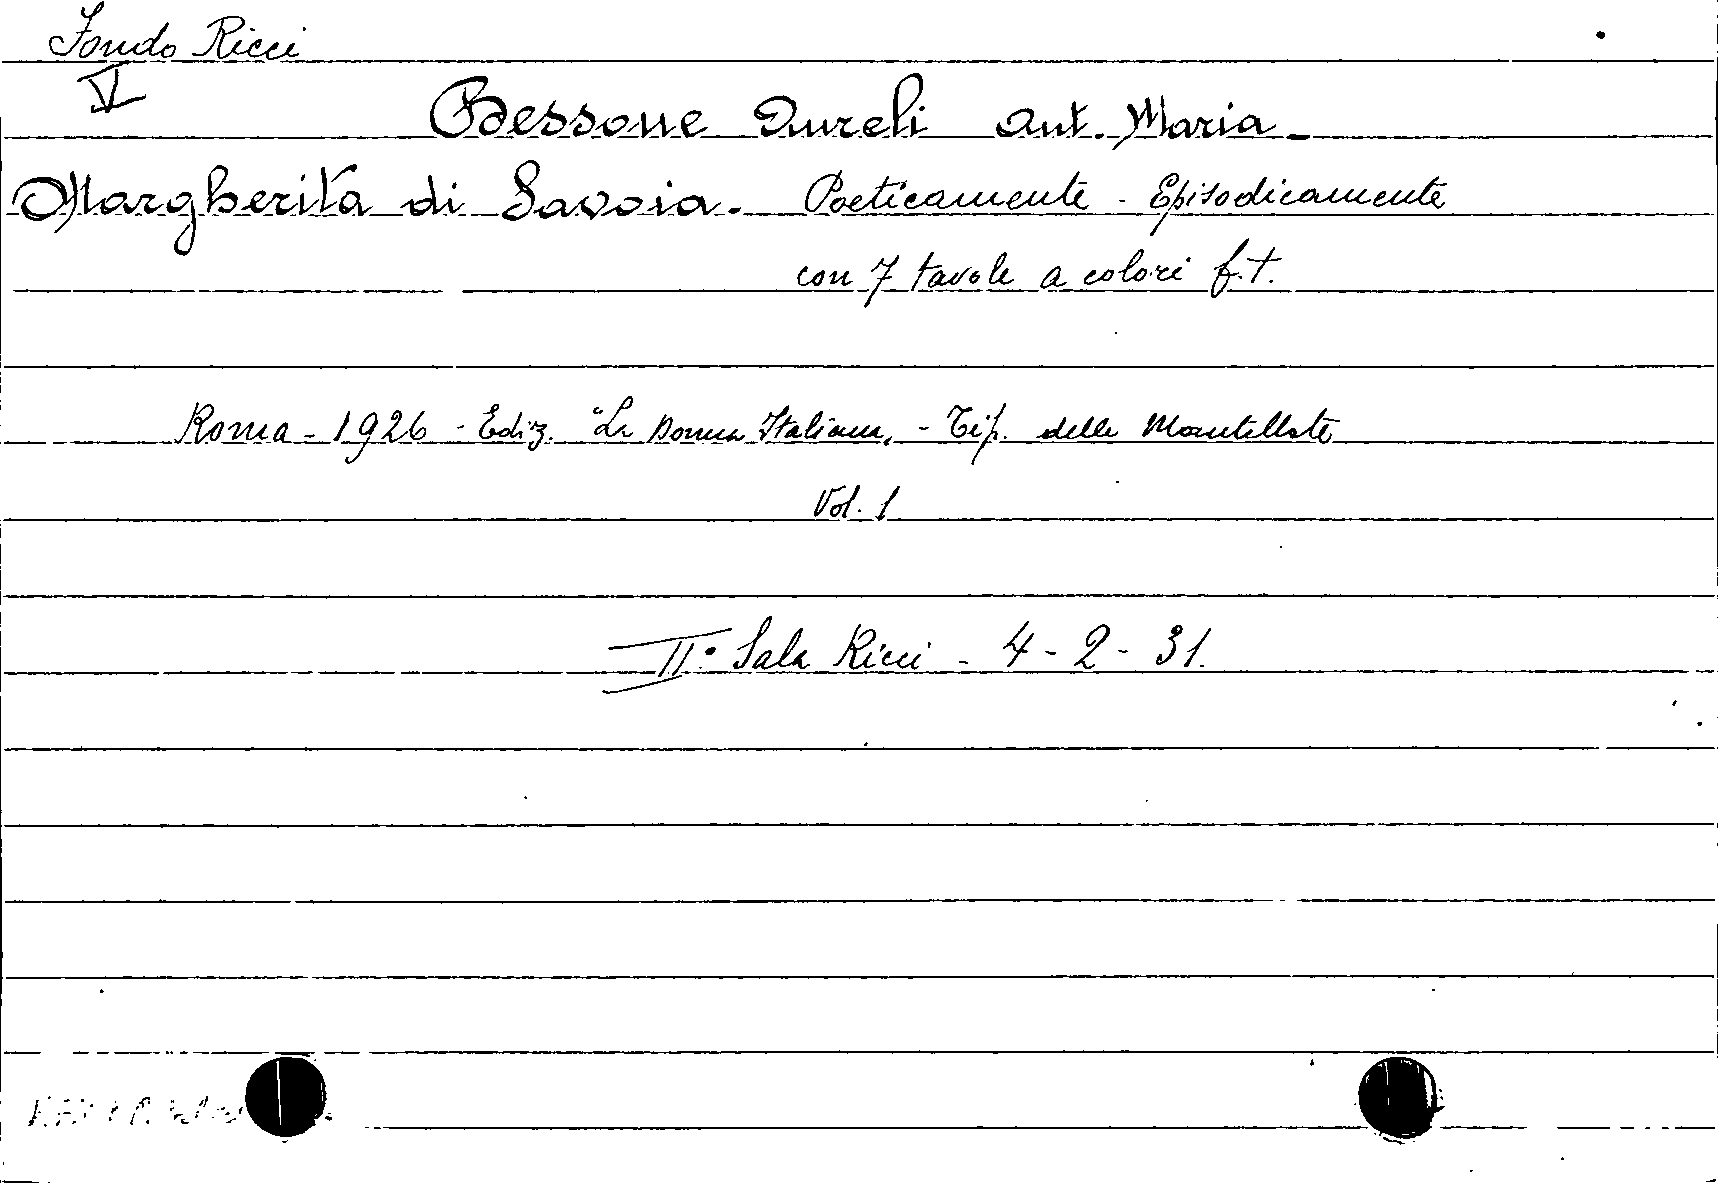 Fondo Ricci
V
Bessone Aureli Ant. Maria -
Margherita di Savoia. Poeticamente - Episodicamente
con 7 tavole a colori f.t.
Roma - 1926 - Ediz. "La Donna Italiana" - Tip. delle Mantellate
Vol. 1
II° Sala Ricci - 4 - 2 - 31.